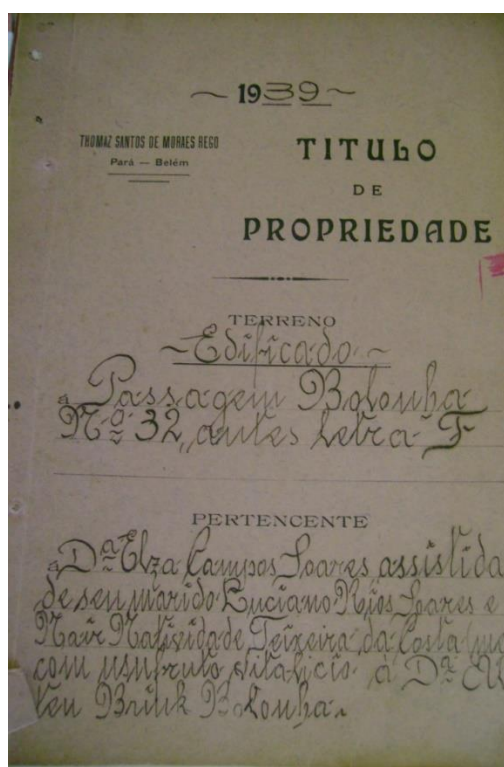 ~ 1939 ~
THOMAZ SANTOS DE MORAES REGO
Pará — Belém
TITULO
DE
PROPRIEDADE
TERRENO
~ Edificado ~
á Passagem Bolonha
Nº 32, antes letra F
PERTENCENTE
á Dª Elza Campos Soares assistida
de seu marido Luciano Rios Soares e
Nair Natividade Teixeira da Costa
com usufruto vitalicio á Dª
ten Brink Bolonha.